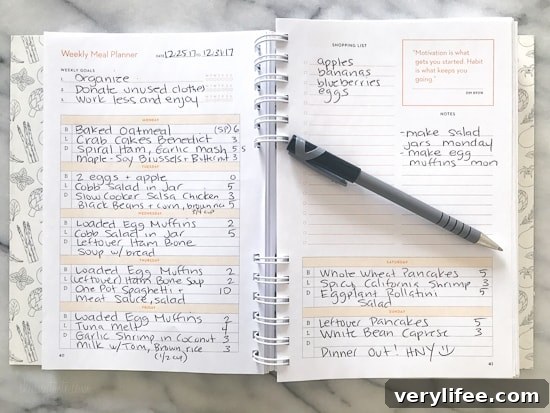 Weekly Meal Planner
DATE 12·25·17 TO 12·31·17
WEEKLY GOALS
1. Organize
2. Donate unused clothes
3. Work less and enjoy
MONDAY
B Baked Oatmeal (SP) 6
L Crab Cakes Benedict 3
D Spiral Ham, Garlic Mash 5 5
Maple-Soy Brussels + Butternut 3
TUESDAY
B 2 eggs + apple 0
L Cobb Salad in Jar 5
D Slow Cooker Salsa Chicken 3
Black Beans + Corn, brown rice 5
3/4 cup
WEDNESDAY
B Loaded Egg Muffins 2
L Cobb Salad in Jar 5
D Leftover Ham Bone
Soup w/bread
THURSDAY
B Loaded Egg Muffins 2
L (Leftover) Ham Bone Soup 2
D One Pot Spaghetti + 10
Meat Sauce, salad
FRIDAY
B Loaded Egg Muffins 2
L Tuna melt 4
D Garlic Shrimp in Coconut 3
Milk w/Tom, Brown rice 3
(1/2 cup)
40
SHOPPING LIST
apples
bananas
blueberries
eggs
"Motivation is what
gets you started. Habit
is what keeps you
going."
JIM RYUN
NOTES
-make salad
jars monday
-make egg
muffins mon
SATURDAY
B Whole Wheat Pancakes 5
L Spicy California Shrimp 3
D Eggplant Rollatini 5
Salad
SUNDAY
B Leftover Pancakes 5
L White Bean Caprese 3
D
Dinner Out! HNY
41
verylifee.com